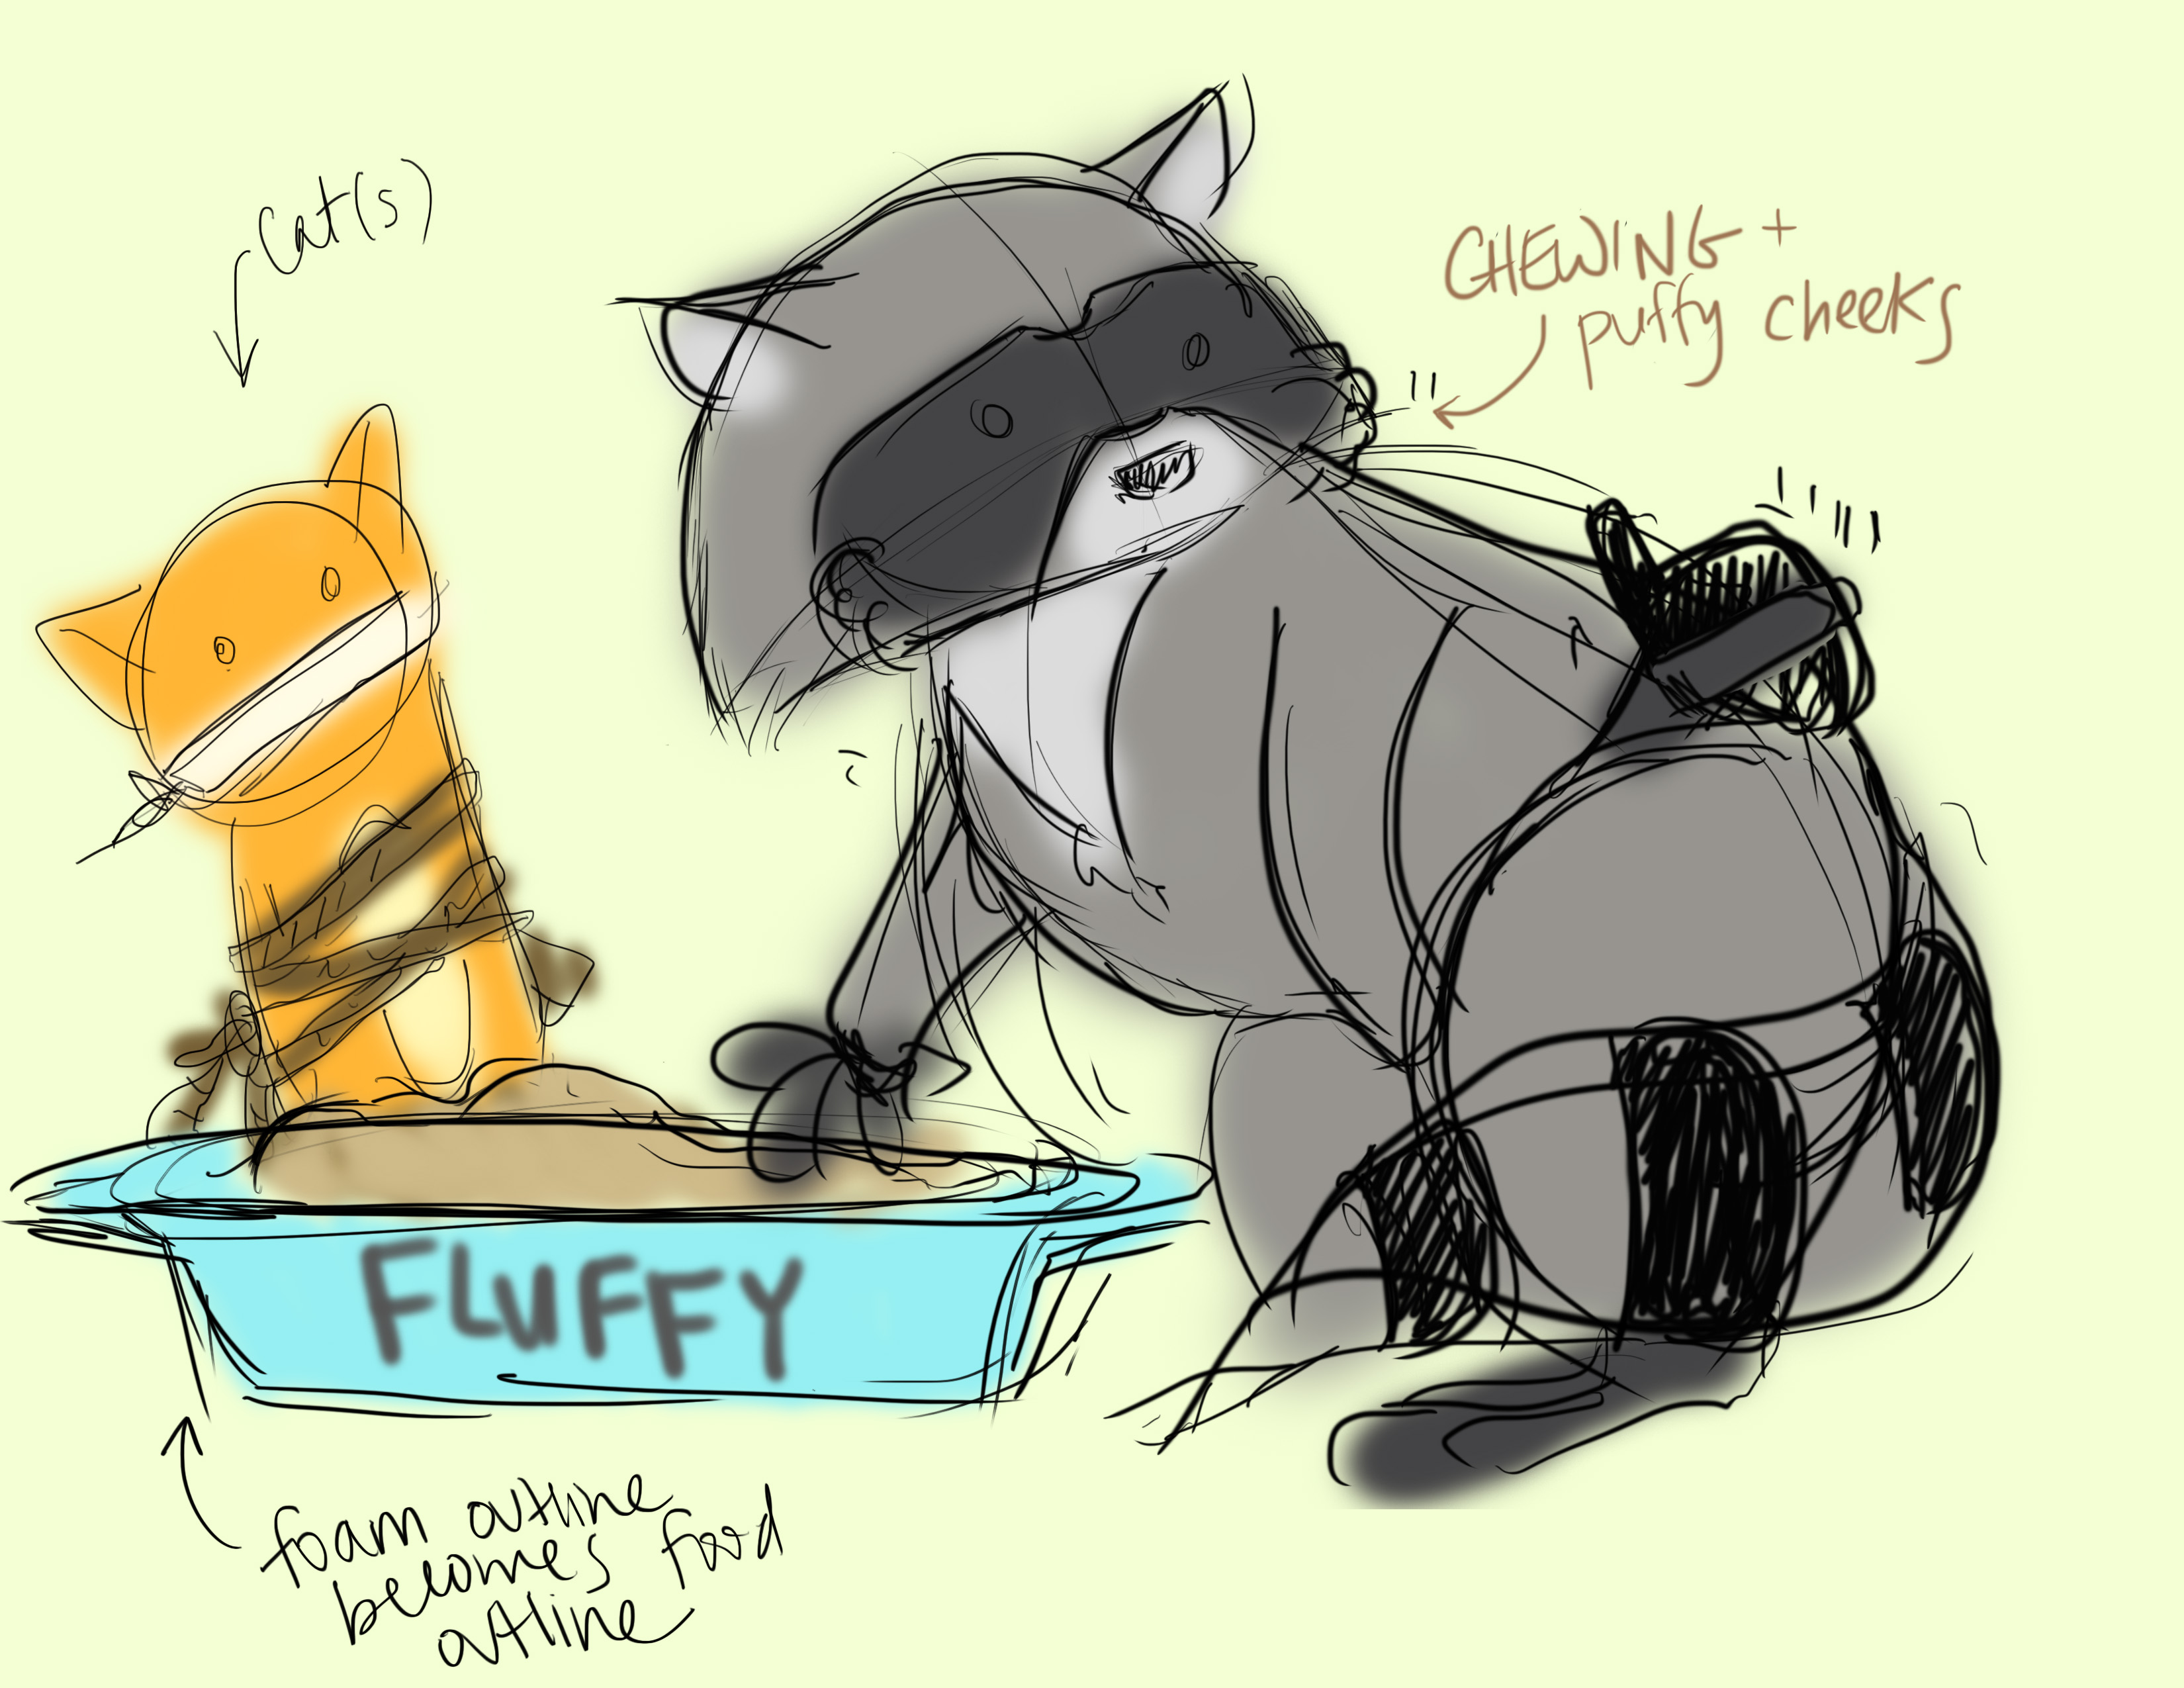 Cat(s)
CHEWING +
puffy cheeks
FLUFFY
foam outline
becomes food
outline